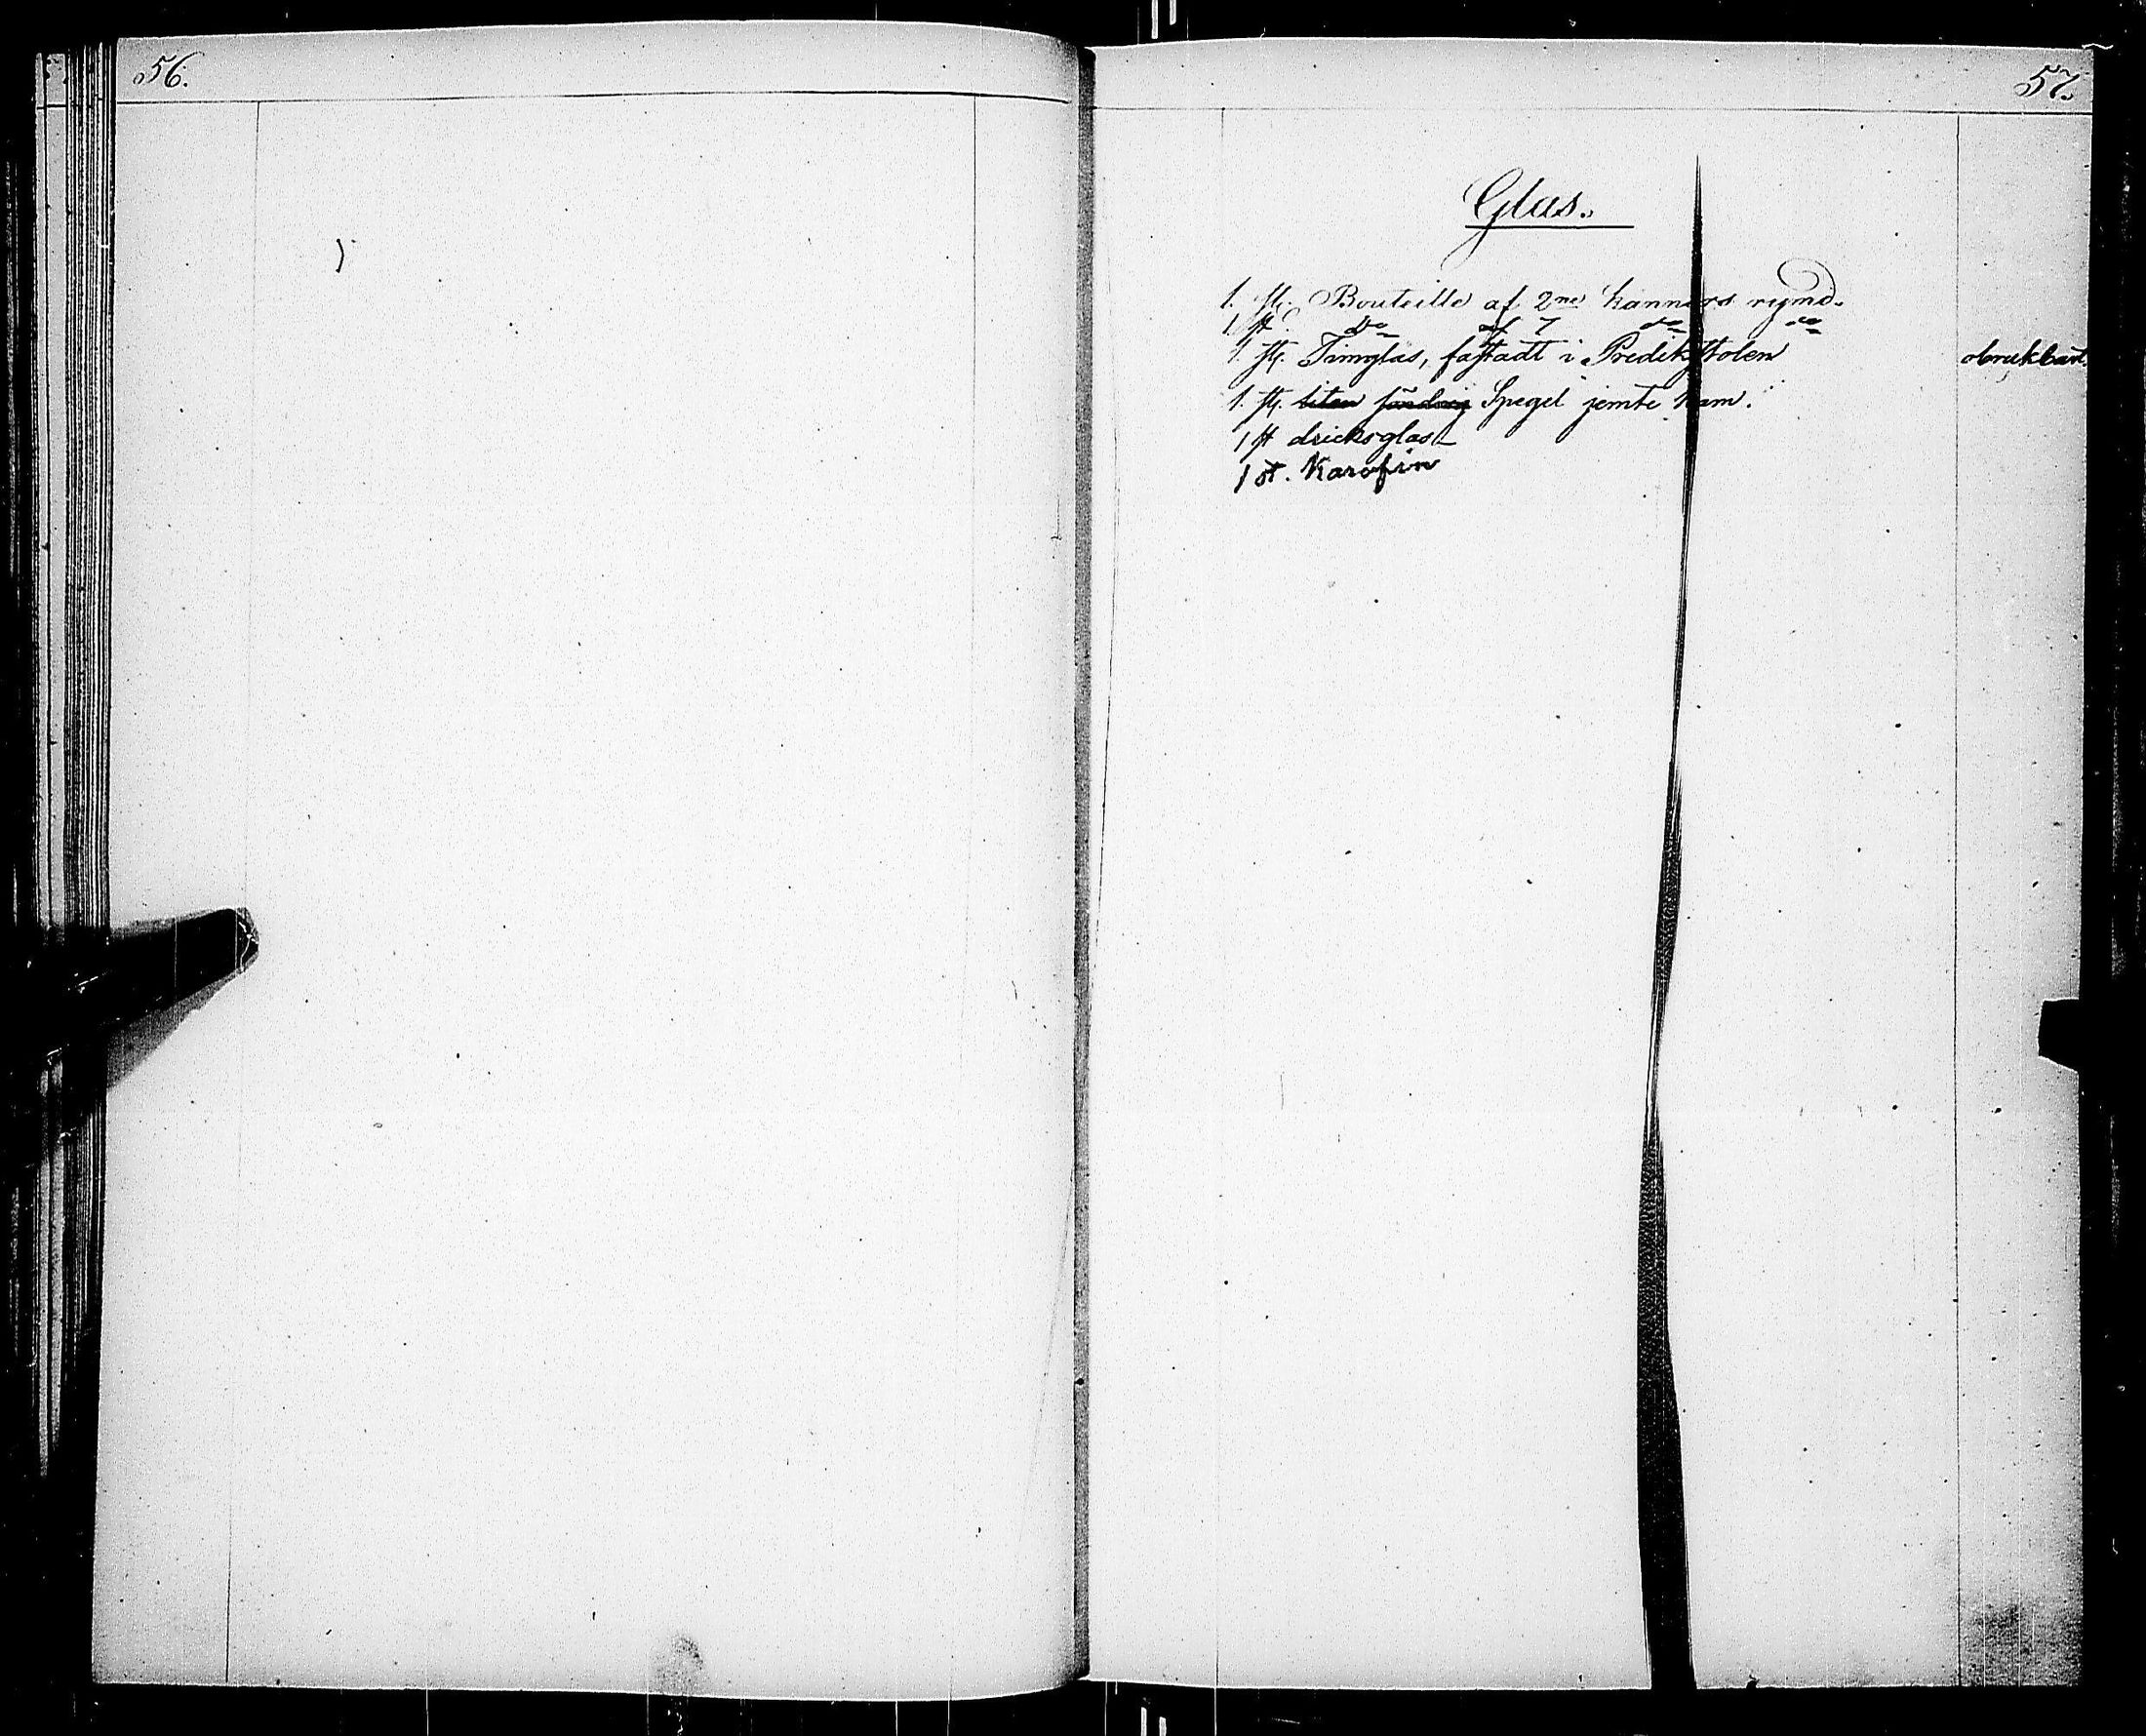 56.
57.
Glas.
1. st. Bouteille af 2ne kannors rymd.
1 st. do af 7 do do
1. st. Timglas, fastadt i Predikstolen obrukbart.
1. st. liten Spegel jemte kam.
1 st dricksglas
1 st. Karafin